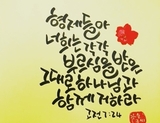 형제들아
너희는 각각
부르심을 받은
그대로 하나님과
함께 거하라
고전 7:24